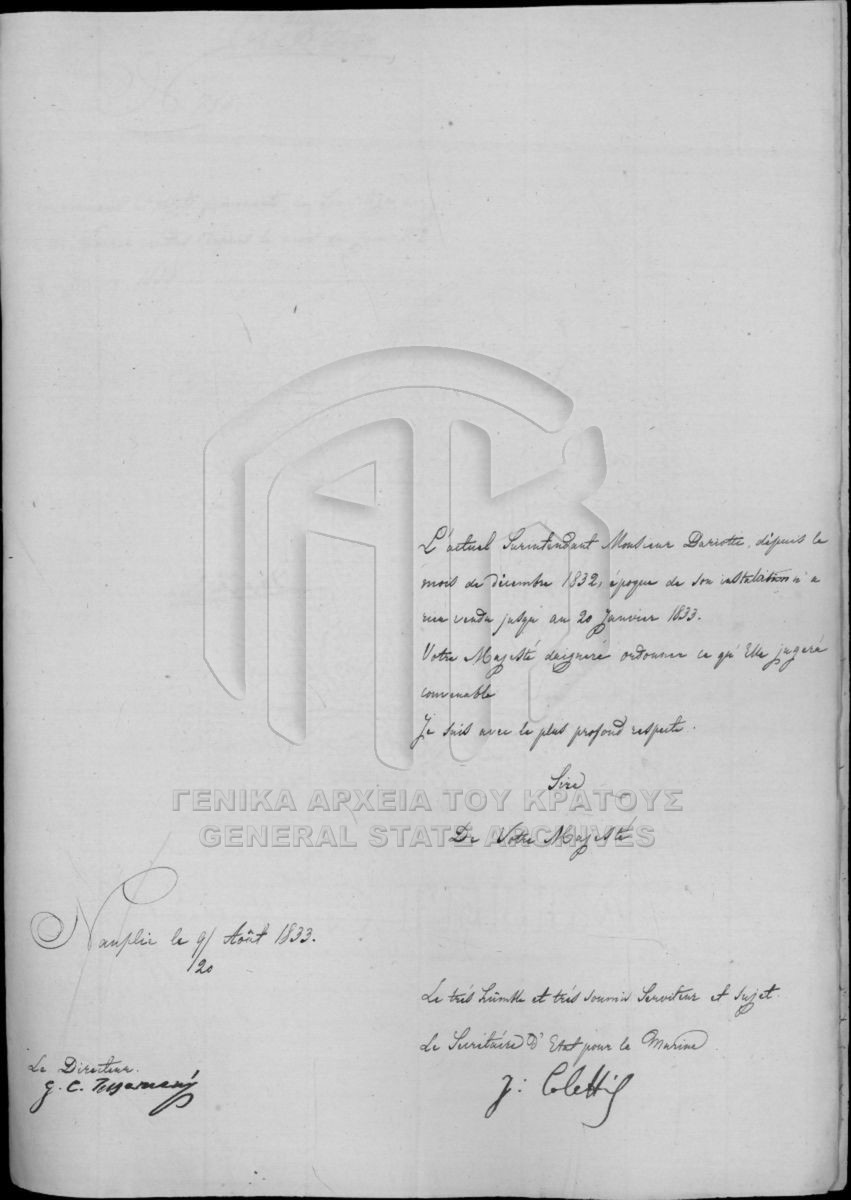 L'actuel Surintendant Monsieur Dariotte, dépuis le
mois de décembre 1832, époque de son installation n'a
rien vendu jusqu'au 20 Janvier 1833.
Votre Majesté daignera ordonner ce qu'Elle jugera
convenable
Je suis avec le plus profond respecte.
Sire
ΓΕΝΙΚΑ ΑΡΧΕΙΑ ΤΟΥ ΚΡΑΤΟΥΣ
GENERAL STATE ARCHIVES
De Votre Majesté
Nauplie le 9/ Août 1833.
/20
Le trés humble et trés soumis Serviteur et Sujet.
Le Secrétaire D'Etat pour la Marine
J: Colettis
Le Directeur.
G. C.